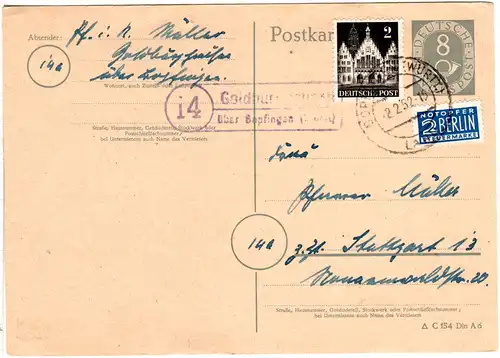 Absender:
Pf. i. R. Müller
Goldburghausen
über Bopfingen.
14a
Wohnort, auch Zustell- oder
Straße, Hausnummer, Gebäudeteil, Stockwerk oder
Postschließfachnummer;
bei Untermietern auch Name des Vermieters
Postkar
2
DEUTSCHE POST
8
DEUTSCHE
POST
(WÜRTT
2.2.52
NOTOPFER
2 BERLIN
STEUERMARKE
14
Goldburghausen
über Bopfingen
Frau
Pfarrer Müller
14a
z. Zt. Stuttgart 13
Straße, Hausnummer, Gebäudeteil, Stockwerk oder Postschließfachnummer;
bei Untermietern auch Name des Vermieters
Δ C 154 Din A 6